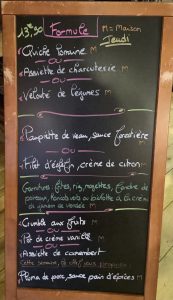 13€50 Formule M = Maison
Jeudi
Quiche lorraine M
ou
Assiette de charcuterie M
ou
Velouté de légumes M
Paupiette de veau, sauce forestière
ou
Filet d'églefin, crème de citron M
Garnitures: frites, riz, nouettes, fondue de
poireaux, haricots verts ou
M
Crumble aux fruits M
ou
Pot de crème vanille M
ou
Assiette de camembert
Pluma de porc, sauce pain d'épices M